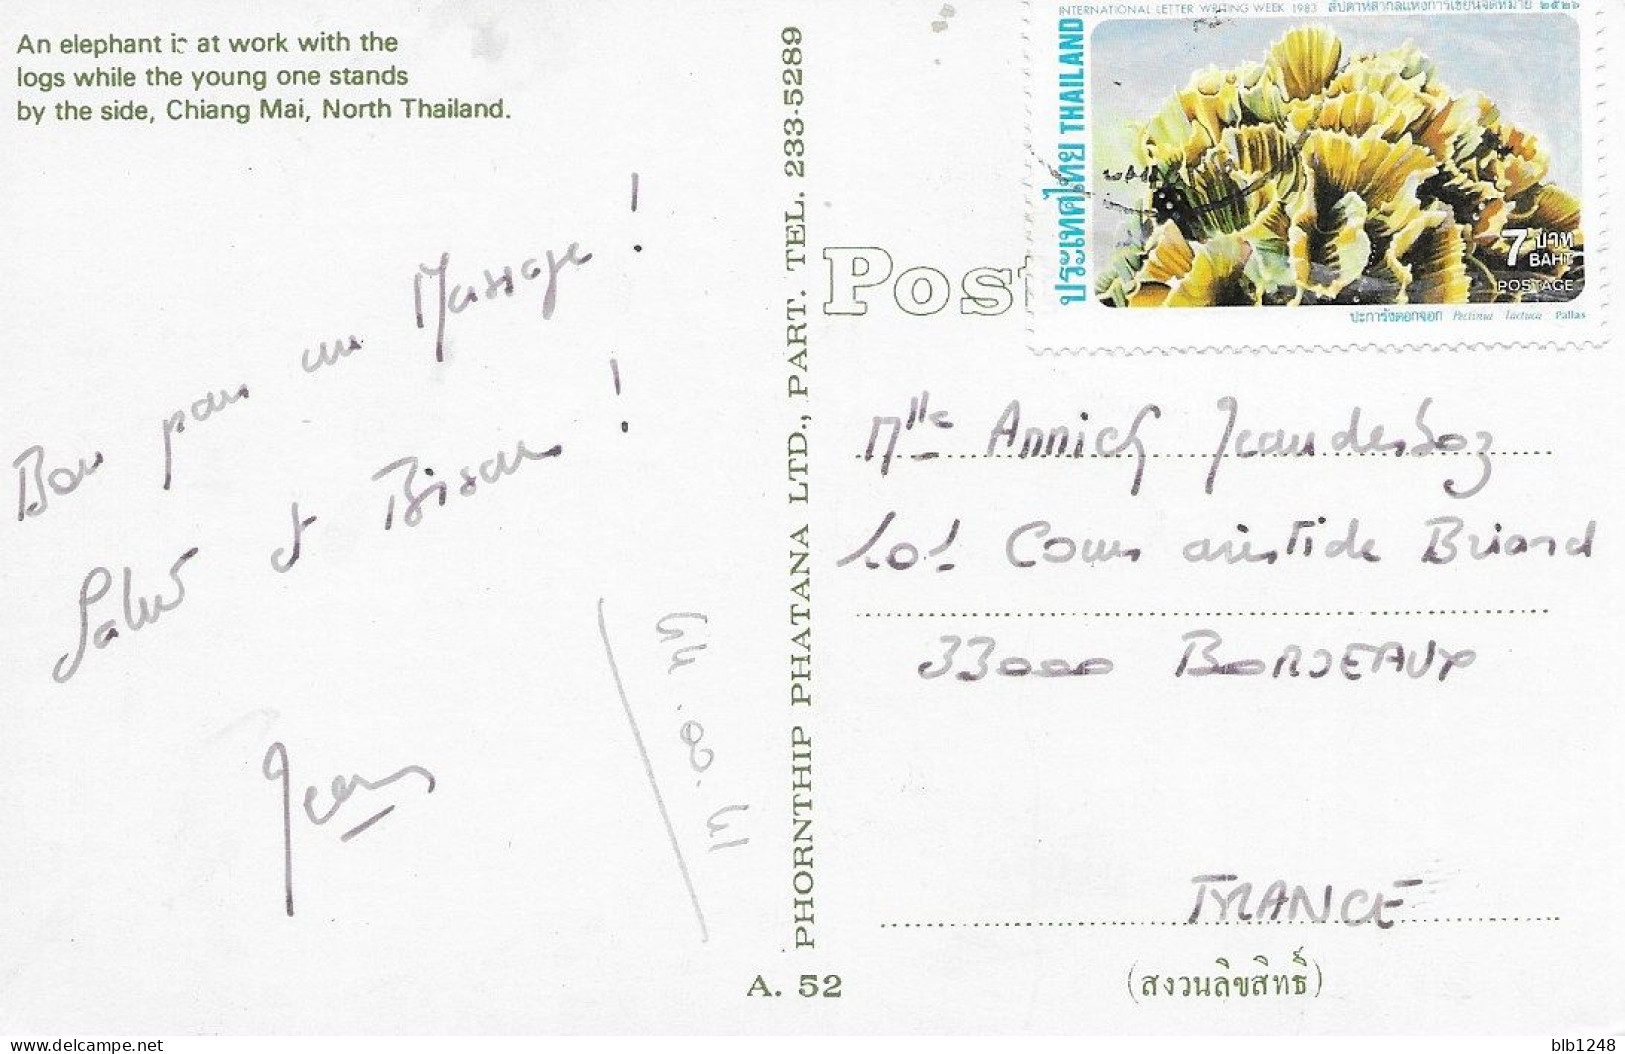 An elephant is at work with the
logs while the young one stands
by the side, Chiang Mai, North Thailand.
Bon pour un Massage !
Salut et Bisous !
Jean
PHORNTHIP PHATANA LTD., PART. TEL. 233-5289
A. 52
Post
INTERNATIONAL LETTER WRITING WEEK 1983 สัปดาห์สากลแห่งการเขียนจดหมาย ๒๕๒๖
ประเทศไทย THAILAND
7 บาท
BAHT
POSTAGE
ปะการังดอกจอก Pectinia lactuca Pallas
Mlle Annick Jeandesboz
101 Cours aristide Briand
33000 BORDEAUX
FRANCE
(สงวนลิขสิทธิ์)
blb1248